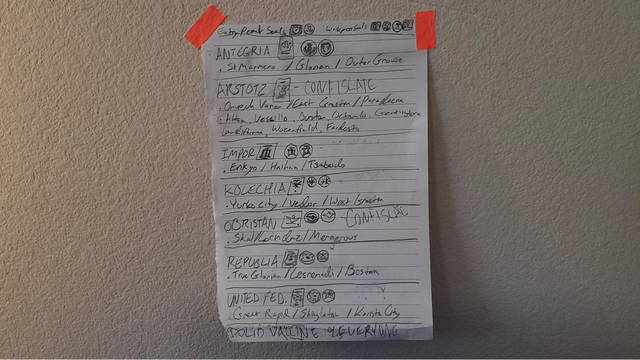 Entry Permit Seals Workpass Seals
ANTEGRIA
. St Marmero / Glorian / Outer Grouse
ARSTOTZ - CONFISCATE
. Orvech Vonor / East Grestin / Paradizna
. Altan, Vescillo, Burnton, Octovalis, Gennistora
Lendiforma, Wozenfield, Fardesto
IMPOR
. Enkyo / Haihan / Tsunkeido
KOLECHIA
. Yurko City / Vedor / West Grestin
OBRISTAN CONFISCATE
. Skal / Lorndaz / Mergerous
REPUBLIA
. True Glorian / Lesrenadi / Bostan
UNITED FED.
. Great Rapid / Shingleton / Korista City
POLIO VACCINE 4 EVERYONE